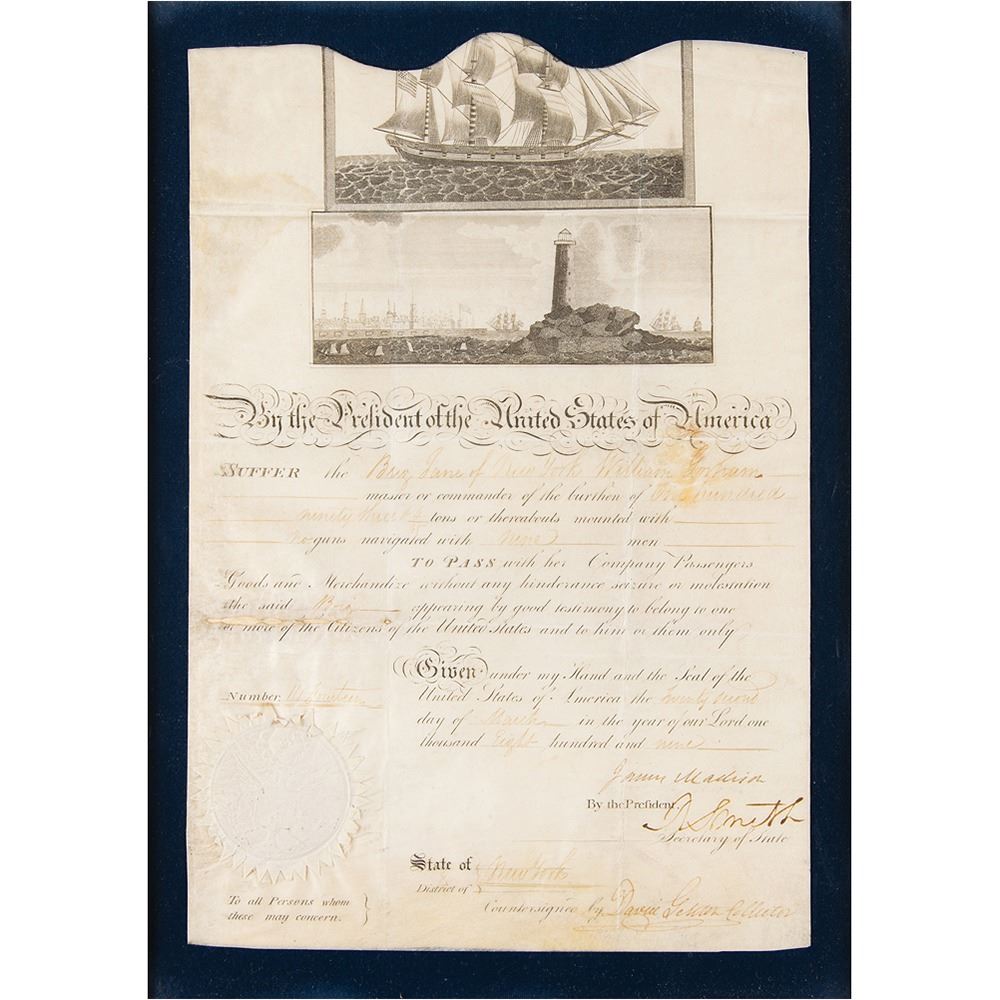 By the President of the United States of America
SUFFER the Brig Jane of New York William
master or commander of the burthen of One hundred
ninety three tons or thereabouts mounted with
no guns navigated with nine men
TO PASS with her Company Passengers
Goods and Merchandize without any hinderance seizure or molestation
the said Brig appearing by good testimony to belong to one
or more of the Citizens of the United States and to him or them only
Given under my Hand and the Seal of the
Number
United States of America the twenty second
day of March in the year of our Lord one
thousand Eight hundred and nine
James Madison
By the President,
R Smith
Secretary of State
State of New York
District of
Countersigned by David Gelston Collector
To all Persons whom
these may concern.